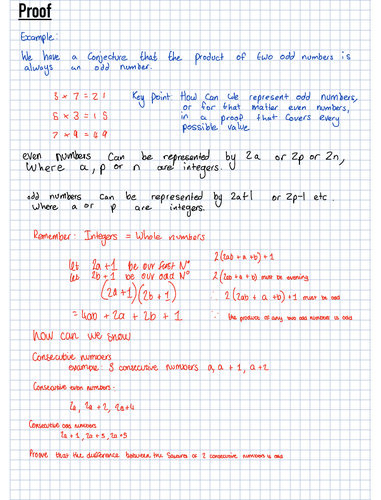 Proof
Example:
We have a conjecture that the product of two odd numbers is
always an odd number.
3 × 7 = 21
5 × 3 = 15
7 × 9 = 49
Key point How can we represent odd numbers,
or for that matter even numbers,
in a proof that covers every
possible value
even numbers can be represented by 2a or 2p or 2n,
where a, p or n are integers.
odd numbers can be represented by 2a+1 or 2p-1 etc.
where a or p are integers.
Remember: Integers = Whole numbers
let 2a+1 be our first Nº
let 2b+1 be our odd Nº
(2a+1)(2b+1)
= 4ab + 2a + 2b + 1
2(2ab + a + b) + 1
2(2ab + a + b) must be evening
∴ 2(2ab + a + b) + 1 must be odd
∵ the product of any two odd number is odd
how can we show
Consecutive numbers
example: 3 consecutive numbers a, a + 1, a + 2
Consecutive even numbers:
2a, 2a + 2, 2a+4
Consecutive odd numbers
2a + 1, 2a + 3, 2a + 5
Prove that the difference between the squares of 2 consecutive numbers is odd